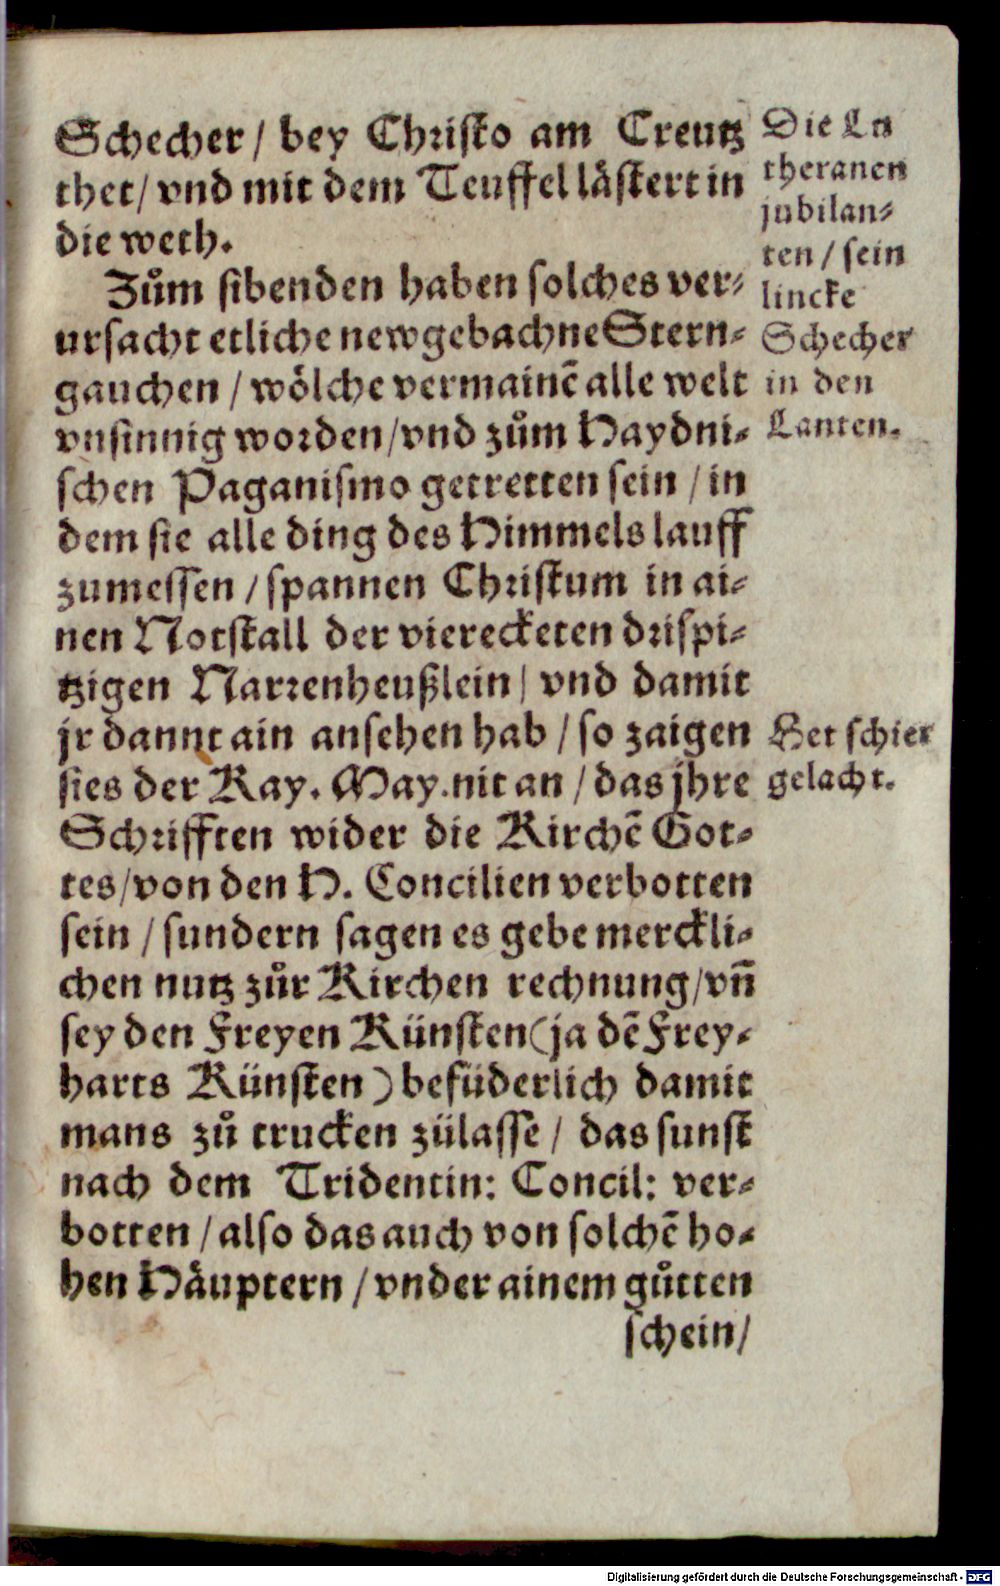 Schecher / bey Christo am Creutz
thet / vnd mit dem Teuffel lästert in
die weth.
Zům sibenden haben solches ver⸗
ursacht etliche newgebachne Stern⸗
gauchen / wölche vermainē alle welt
vnsinnig worden / vnd zům Haydni⸗
schen Paganismo getretten sein / in
dem sie alle ding des Himmels lauff
zumessen / spannen Christum in ai⸗
nen Notstall der vierecketen drispi⸗
tzigen Narrenheußlein / vnd damit
jr dannt ain ansehen hab / so zaigen
sies der Kay. May. nit an / das jhre
Schrifften wider die Kirchē Got⸗
tes / von den H. Concilien verbotten
sein / sundern sagen es gebe merckli⸗
chen nutz zůr Kirchen rechnung / vn̄
sey den Freyen Künsten (ja dē Frey⸗
harts Künsten) befüderlich damit
mans zů trucken zülasse / das sunst
nach dem Tridentin: Concil: ver⸗
botten / also das auch von solchē ho⸗
hen Häuptern / vnder ainem gůtten
schein /
Die Lu
theranen
jubilan⸗
ten / sein
lincke
Schecher
in den
Lanten.
Het schier
gelacht.
Digitalisierung gefördert durch die Deutsche Forschungsgemeinschaft - DFG